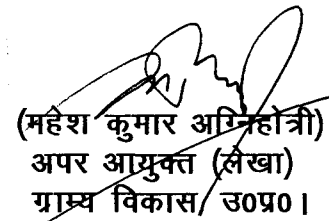 (महेश कुमार अग्निहोत्री)
अपर आयुक्त (लेखा)
ग्राम्य विकास, उ0प्र0।